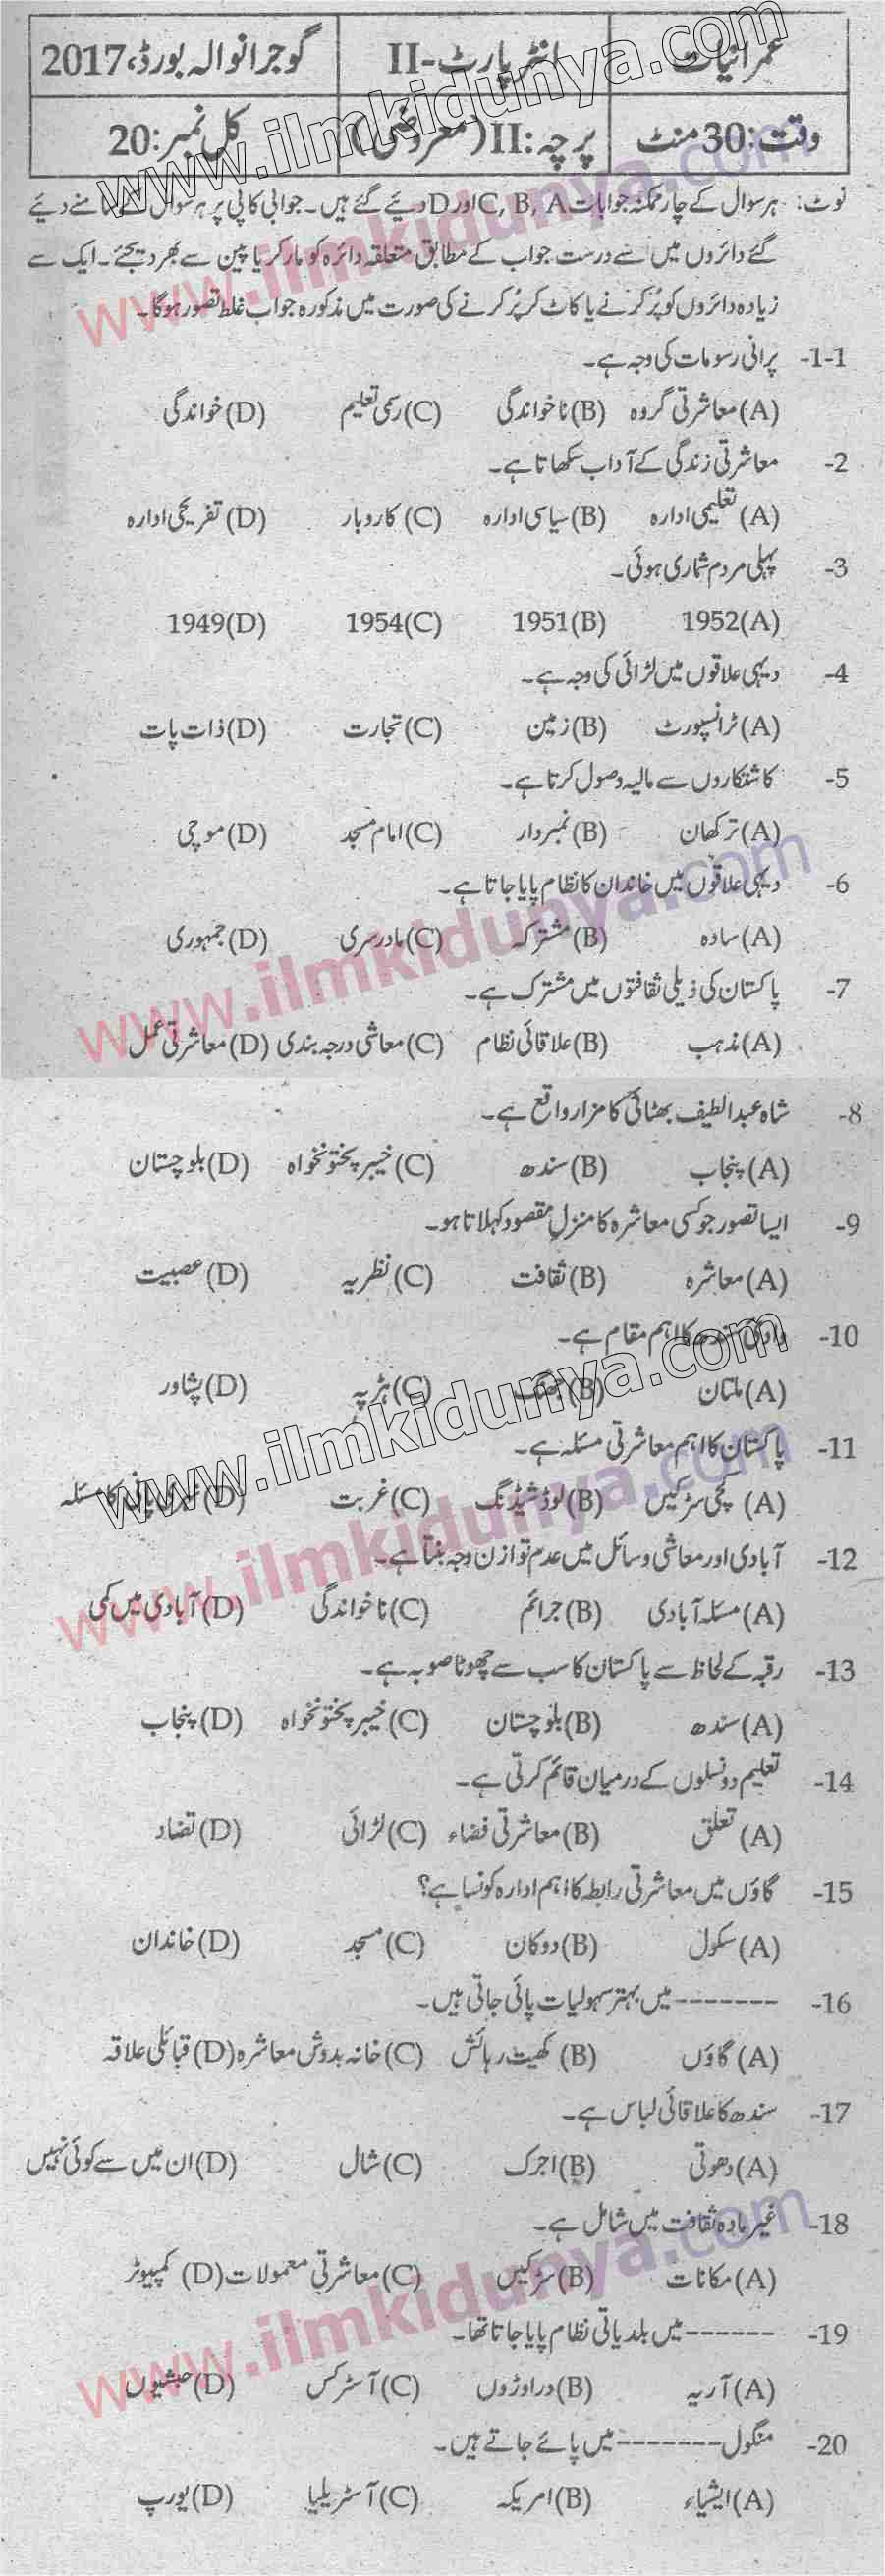 عمرانیات انٹر پارٹ-II گوجرانوالہ بورڈ،2017
وقت:30 منٹ پرچہ:II(معروضی) کل نمبر:20
نوٹ: ہر سوال کے چار ممکنہ جوابات C, B, A اور D دیئے گئے ہیں۔ جوابی کاپی پر ہر سوال کے سامنے دیئے
گئے دائروں میں سے درست جواب کے مطابق متعلقہ دائرہ کو مارکر یا پین سے بھر دیجئے۔ ایک سے
زیادہ دائروں کو پُر کرنے یا کاٹ کر پُر کرنے کی صورت میں مذکورہ جواب غلط تصور ہوگا۔
1-1- پرانی رسومات کی وجہ ہے۔
(A) معاشرتی گروہ (B) ناخواندگی (C) رسمی تعلیم (D) خواندگی
2- معاشرتی زندگی کے آداب سکھاتا ہے۔
(A) تعلیمی ادارہ (B) سیاسی ادارہ (C) کاروبار (D) تفریحی ادارہ
3- پہلی مردم شماری ہوئی۔
(A) 1952 (B) 1951 (C) 1954 (D) 1949
4- دیہی علاقوں میں لڑائی کی وجہ ہے۔
(A) ٹرانسپورٹ (B) زمین (C) تجارت (D) ذات پات
5- کاشتکاروں سے مالیہ وصول کرتا ہے۔
(A) ترکھان (B) نمبردار (C) امام مسجد (D) موچی
6- دیہی علاقوں میں خاندان کا نظام پایا جاتا ہے۔
(A) سادہ (B) مشترکہ (C) مادرسری (D) جمہوری
7- پاکستان کی ذیلی ثقافتوں میں مشترک ہے۔
(A) مذہب (B) علاقائی نظام (C) معاشی درجہ بندی (D) معاشرتی عمل
8- شاہ عبدالطیف بھٹائیؒ کا مزار واقع ہے۔
(A) پنجاب (B) سندھ (C) خیبر پختونخواہ (D) بلوچستان
9- ایسا تصور جو کسی معاشرہ کا منزلِ مقصود کہلاتا ہو۔
(A) معاشرہ (B) ثقافت (C) نظریہ (D) عصبیت
10- وادئ سندھ کا اہم مقام ہے۔
(A) ملتان (B) جھنگ (C) ہڑپہ (D) پشاور
11- پاکستان کا اہم معاشرتی مسئلہ ہے۔
(A) کچی سڑکیں (B) لوڈشیڈنگ (C) غربت (D) نہری پانی کا مسئلہ
12- آبادی اور معاشی وسائل میں عدم توازن وجہ بنتا ہے۔
(A) مسئلہ آبادی (B) جرائم (C) ناخواندگی (D) آبادی میں کمی
13- رقبہ کے لحاظ سے پاکستان کا سب سے چھوٹا صوبہ ہے۔
(A) سندھ (B) بلوچستان (C) خیبر پختونخواہ (D) پنجاب
14- تعلیم دو نسلوں کے درمیان قائم کرتی ہے۔
(A) تعلق (B) معاشرتی فضاء (C) لڑائی (D) تضاد
15- گاؤں میں معاشرتی رابطہ کا اہم ادارہ کونسا ہے؟
(A) سکول (B) دوکان (C) مسجد (D) خاندان
16- ------- میں بہتر سہولیات پائی جاتی ہیں۔
(A) گاؤں (B) کھیت رہائش (C) خانہ بدوش معاشرہ (D) قبائلی علاقہ
17- سندھ کا علاقائی لباس ہے۔
(A) دھوتی (B) اجرک (C) شال (D) ان میں سے کوئی نہیں
18- غیر مادہ ثقافت میں شامل ہے۔
(A) مکانات (B) سڑکیں (C) معاشرتی معمولات (D) کمپیوٹر
19- ------ میں بلدیاتی نظام پایا جاتا تھا۔
(A) آریہ (B) دراوڑوں (C) آسٹرکس (D) حبشیوں
20- منگول ------- میں پائے جاتے ہیں۔
(A) ایشیاء (B) امریکہ (C) آسٹریلیا (D) یورپ
www.ilmkidunya.com
www.ilmkidunya.com
www.ilmkidunya.com
www.ilmkidunya.com
www.ilmkidunya.com
www.ilmkidunya.com